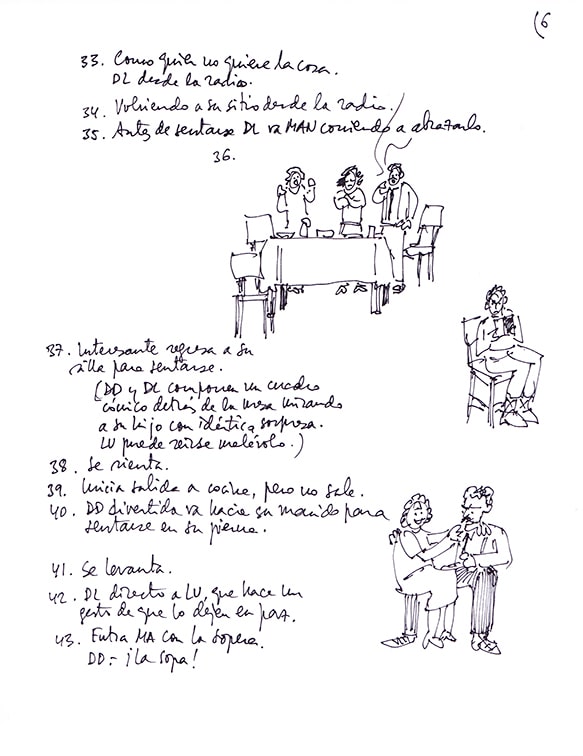 (6
33. Como quien no quiere la cosa.
DL desde la radio.
34. Volviendo a su sitio desde la radio.
35. Antes de sentarse DL va MAN corriendo a abrazarlo.
36.
37. Interesante regresa a su
silla para sentarse.
(DD y DL componen un cuadro
cómico detrás de la mesa mirando
a su hijo con idéntica sorpresa.
LU puede reirse malévolo.)
38. Se sienta.
39. Inicia salida a cocina, pero no sale.
40. DD divertida va hacia su marido para
sentarse en su pierna.
41. Se levanta.
42. DL directo a LU, que hace un
gesto de que lo dejen en paz.
43. Entra MA con la sopera.
DD.- ¡La sopa!